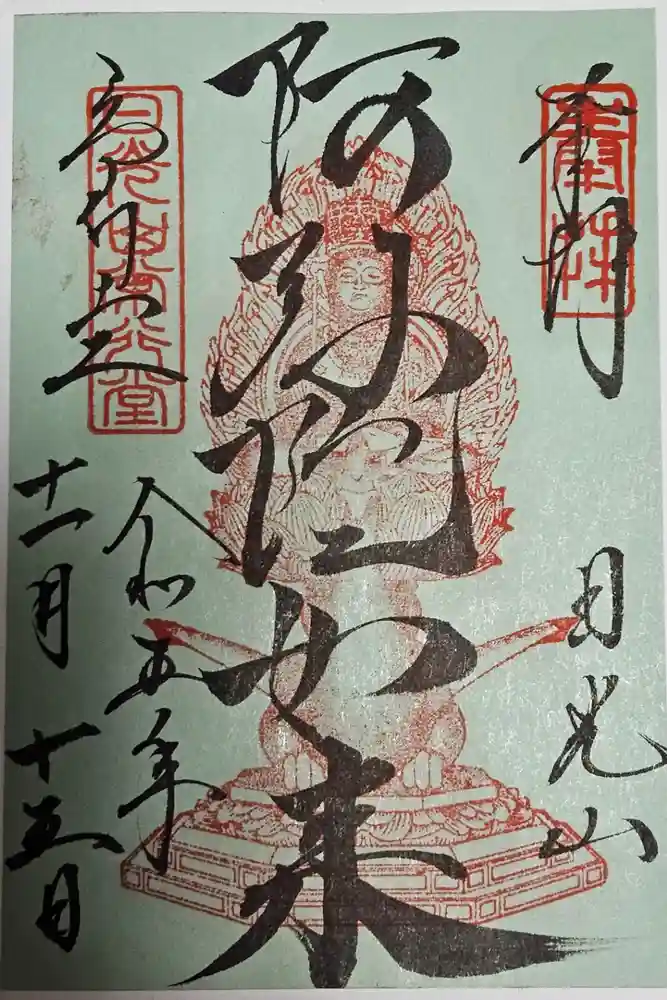 奉拝
奉拝
日光山
阿弥陀如来
常行堂
日光山常行堂
令和五年
十一月十五日